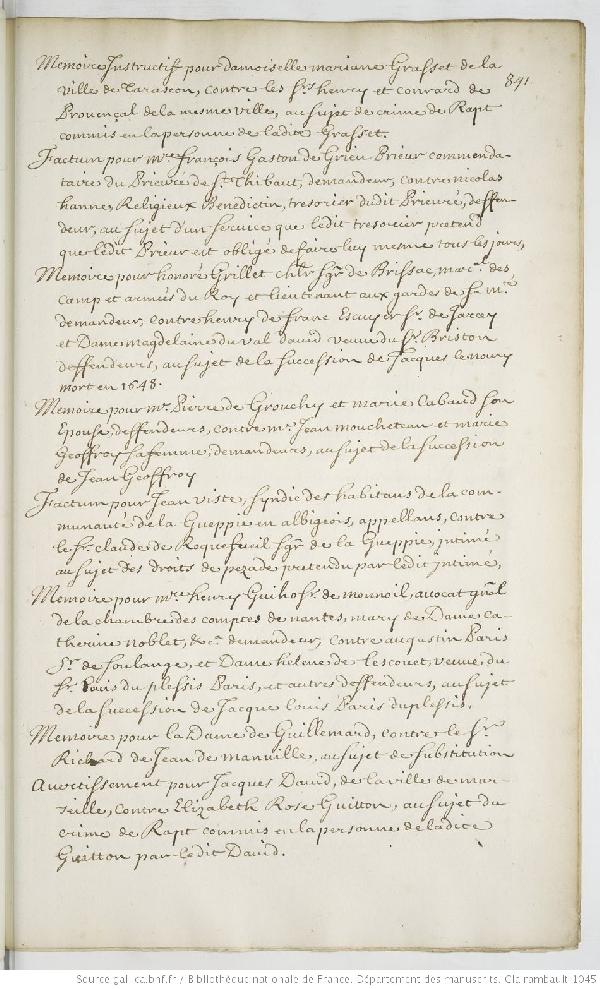 841
Memoire Instructif pour damoiselle mariane Grasset de la
ville de Tarascon, contre les Srs henry et conrard de
Provençal de la mesme ville, au sujet de crime de Rapt
commis en la personne de ladite Grasset.
Factum pour Mre françois Gaston de Grieu Prieur commenda-
taire du Prieuré de St Thibaut, demandeur, contre nicolas
hanne, Religieux Benedictin, tresorier dudit Prieuré, deffen-
deur, au sujet d'un service que ledit tresorier pretend
que ledit Prieur est obligé de faire luy mesme tous les jours,
Memoire pour honoré Grillet chlr Sgr de Brissac, marcal des
camp et armées du Roy et lieutenant aux gardes de Sa Mté
demandeur, contre henry de franc Escuyer Sr de
et Dame magdelaine du val david veuve du Sr Briston
deffendeurs, au sujet de la succession de Jacques
mort en 1648.
Memoire pour Me Pierre de Grouchy et marie Cabaud son
Epouse, deffendeurs, contre Me Jean moucheteau et marie
Geoffroy sa femme, demandeurs, au sujet de la succession
de Jean Geoffroy
Factum pour Jean viste, Syndic des habitans de la com-
munauté de la Gueppie en albigeois, appellans, contre
le Sr claude de Roquefueil Sgr de la Gueppie, intimé
au sujet des droits de pezade pretendu par ledit intimé,
Memoire pour Mre henry Guiho Sr de monnoil, avocat gñal
de la chambre des comptes de nantes, mary de Dame Ca-
therine noblet, &ca demandeur, contre augustin Paris
Sr de Soulange, et Dame helene de Lescouet, veuve du
Sr Louis du plessis Paris, et autres deffendeurs, au sujet
de la succession de Jacque Louis Paris duplessis.
Memoire pour la Dame de Guillemard, contre le Sr
Richard de Jean de manville, au sujet de substitution
Avertissement pour Jacques David, de la ville de mar-
seille, contre Elizabeth Rose Guitton, au sujet du
crime de Rapt commis en la personne de ladite
Guitton par ledit David.
Source gallica.bnf.fr / Bibliothèque nationale de France. Département des manuscrits. Clairambault 1045